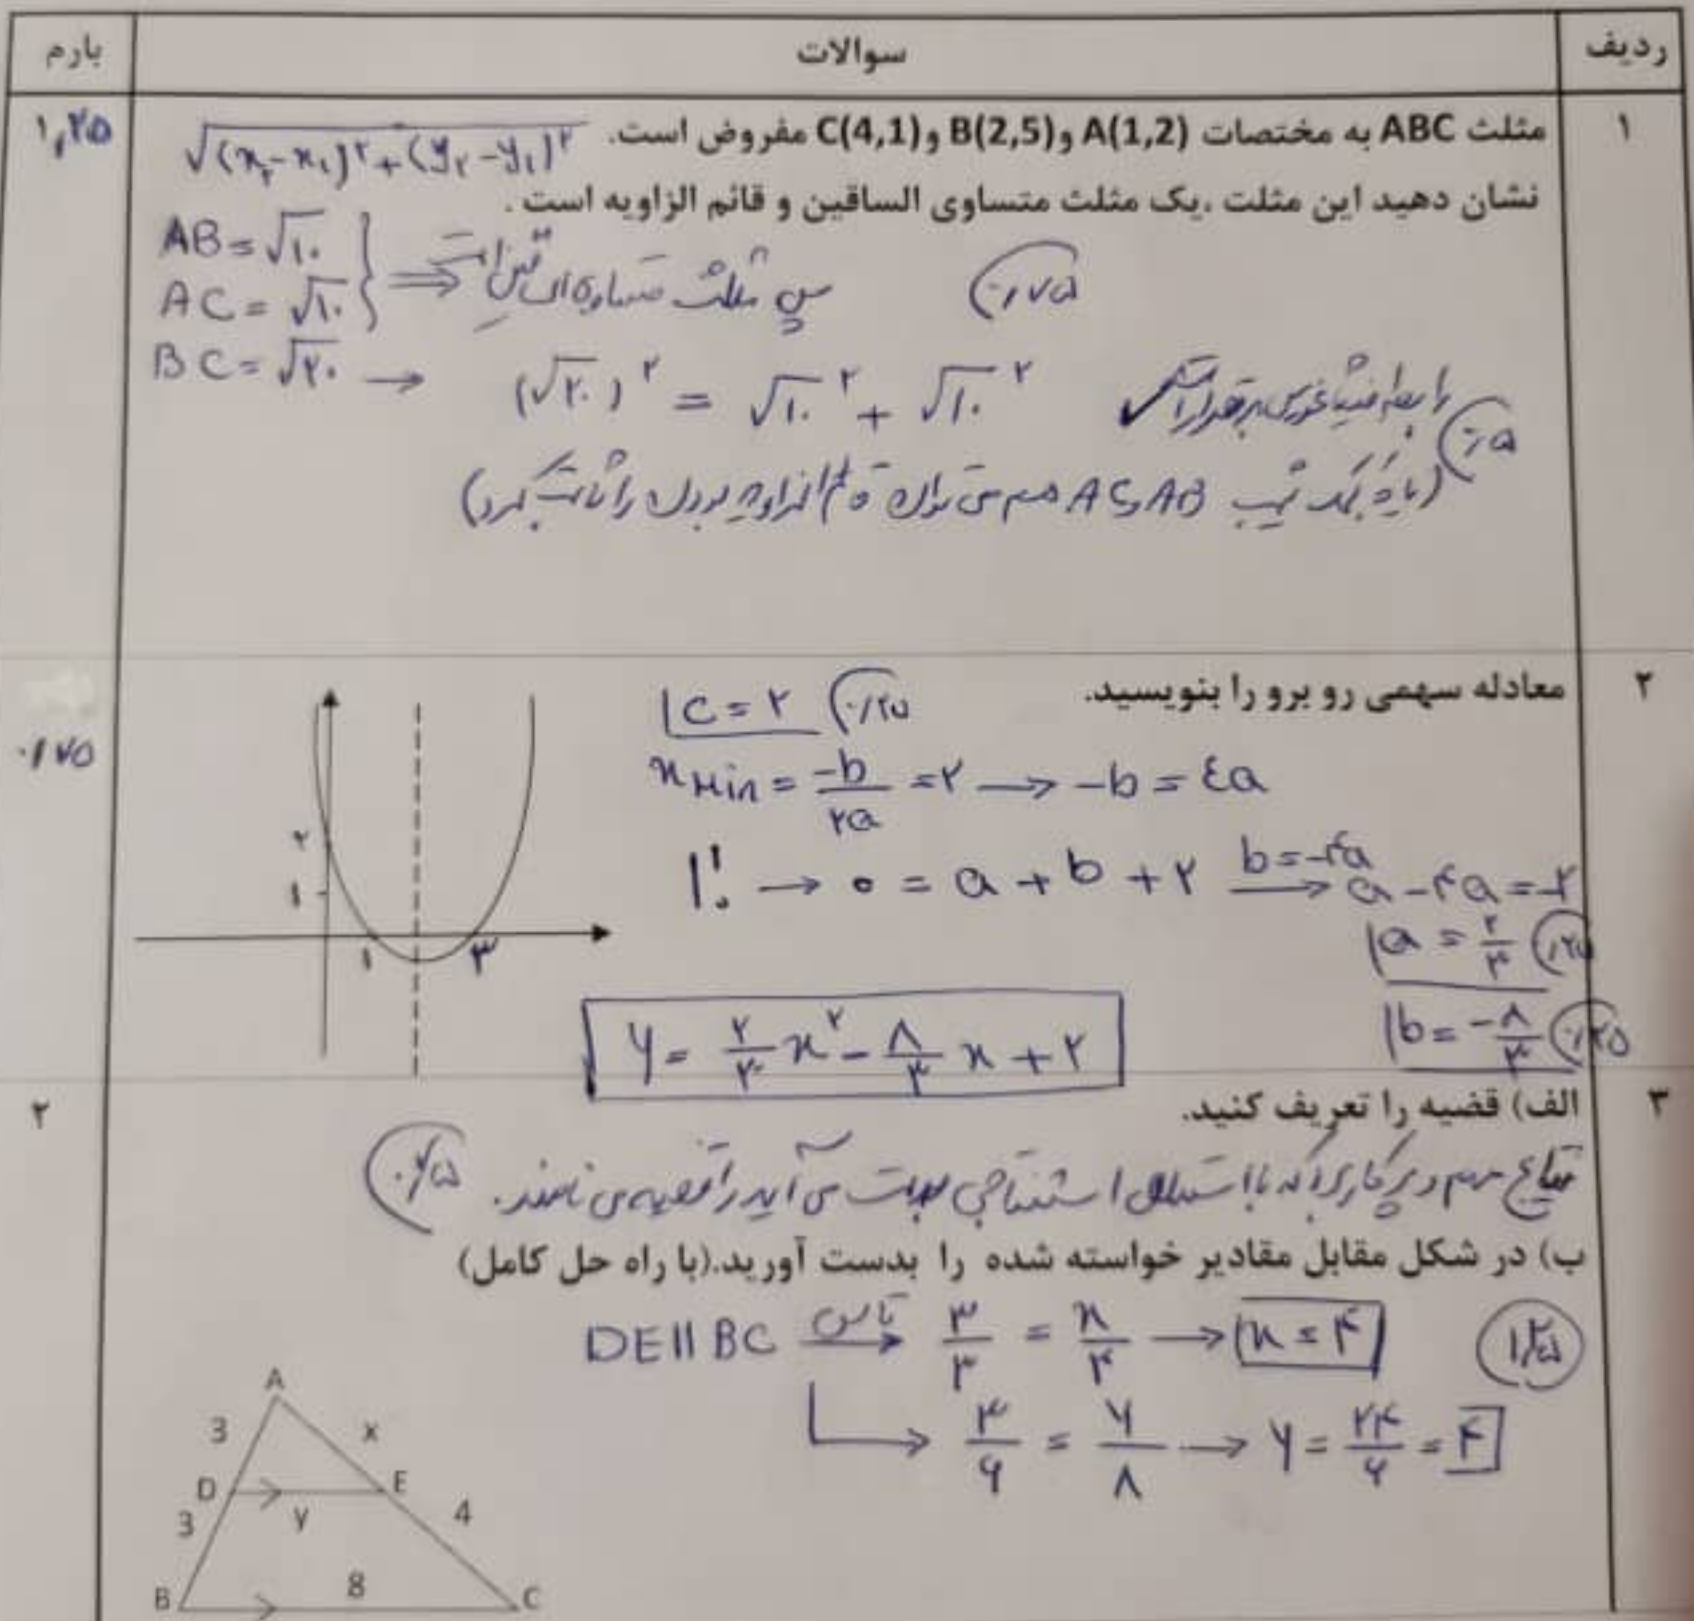 ردیف سوالات بارم
۱ مثلث ABC به مختصات A(1,2) و B(2,5) و C(4,1) مفروض است. √(x₂-x₁)²+(y₂-y₁)² ۱,۲۵
نشان دهید این مثلت ،یک مثلث متساوی الساقین و قائم الزاویه است .
AB = √۱۰
AC = √۱۰ } ⟹ پس مثلث متساوی الساقین است ۰/۷۵
BC = √۲۰ → (√۲۰)² = √۱۰² + √۱۰² رابطه فیثاغورس برقرار است ✓ ۰/۵
(یا به کمک شیب AB و AC هم می توان قائم الزاویه بودن را ثابت کرد)
۲ معادله سهمی رو برو را بنویسید. ۰/۷۵
c = ۲ ۰/۲۵
x Min = -b/۲a = ۲ → -b = ٤a
|۱ ۰ → ۰ = a + b + ۲ b=-۴a → a - ۴a = -۲
a = ۲/۳ ۰/۲۵
b = -۸/۳ ۰/۲۵
y = ۲/۳ x² - ۸/۳ x + ۲
۲
۱
۱ ۳
۳ الف) قضیه را تعریف کنید. ۲
نتایج مهم و پرکاربرد که با استدلال استنتاجی بدست می آید را قضیه می نامند. ۰/۷۵
ب) در شکل مقابل مقادیر خواسته شده را بدست آورید.(با راه حل کامل)
DE || BC تالس → ۳/۳ = x/۴ → x = ۴ ۱/۲۵
→ ۳/۶ = y/۸ → y = ۲۴/۶ = ۴
A
3 x
D E
3 y 4
B 8 C